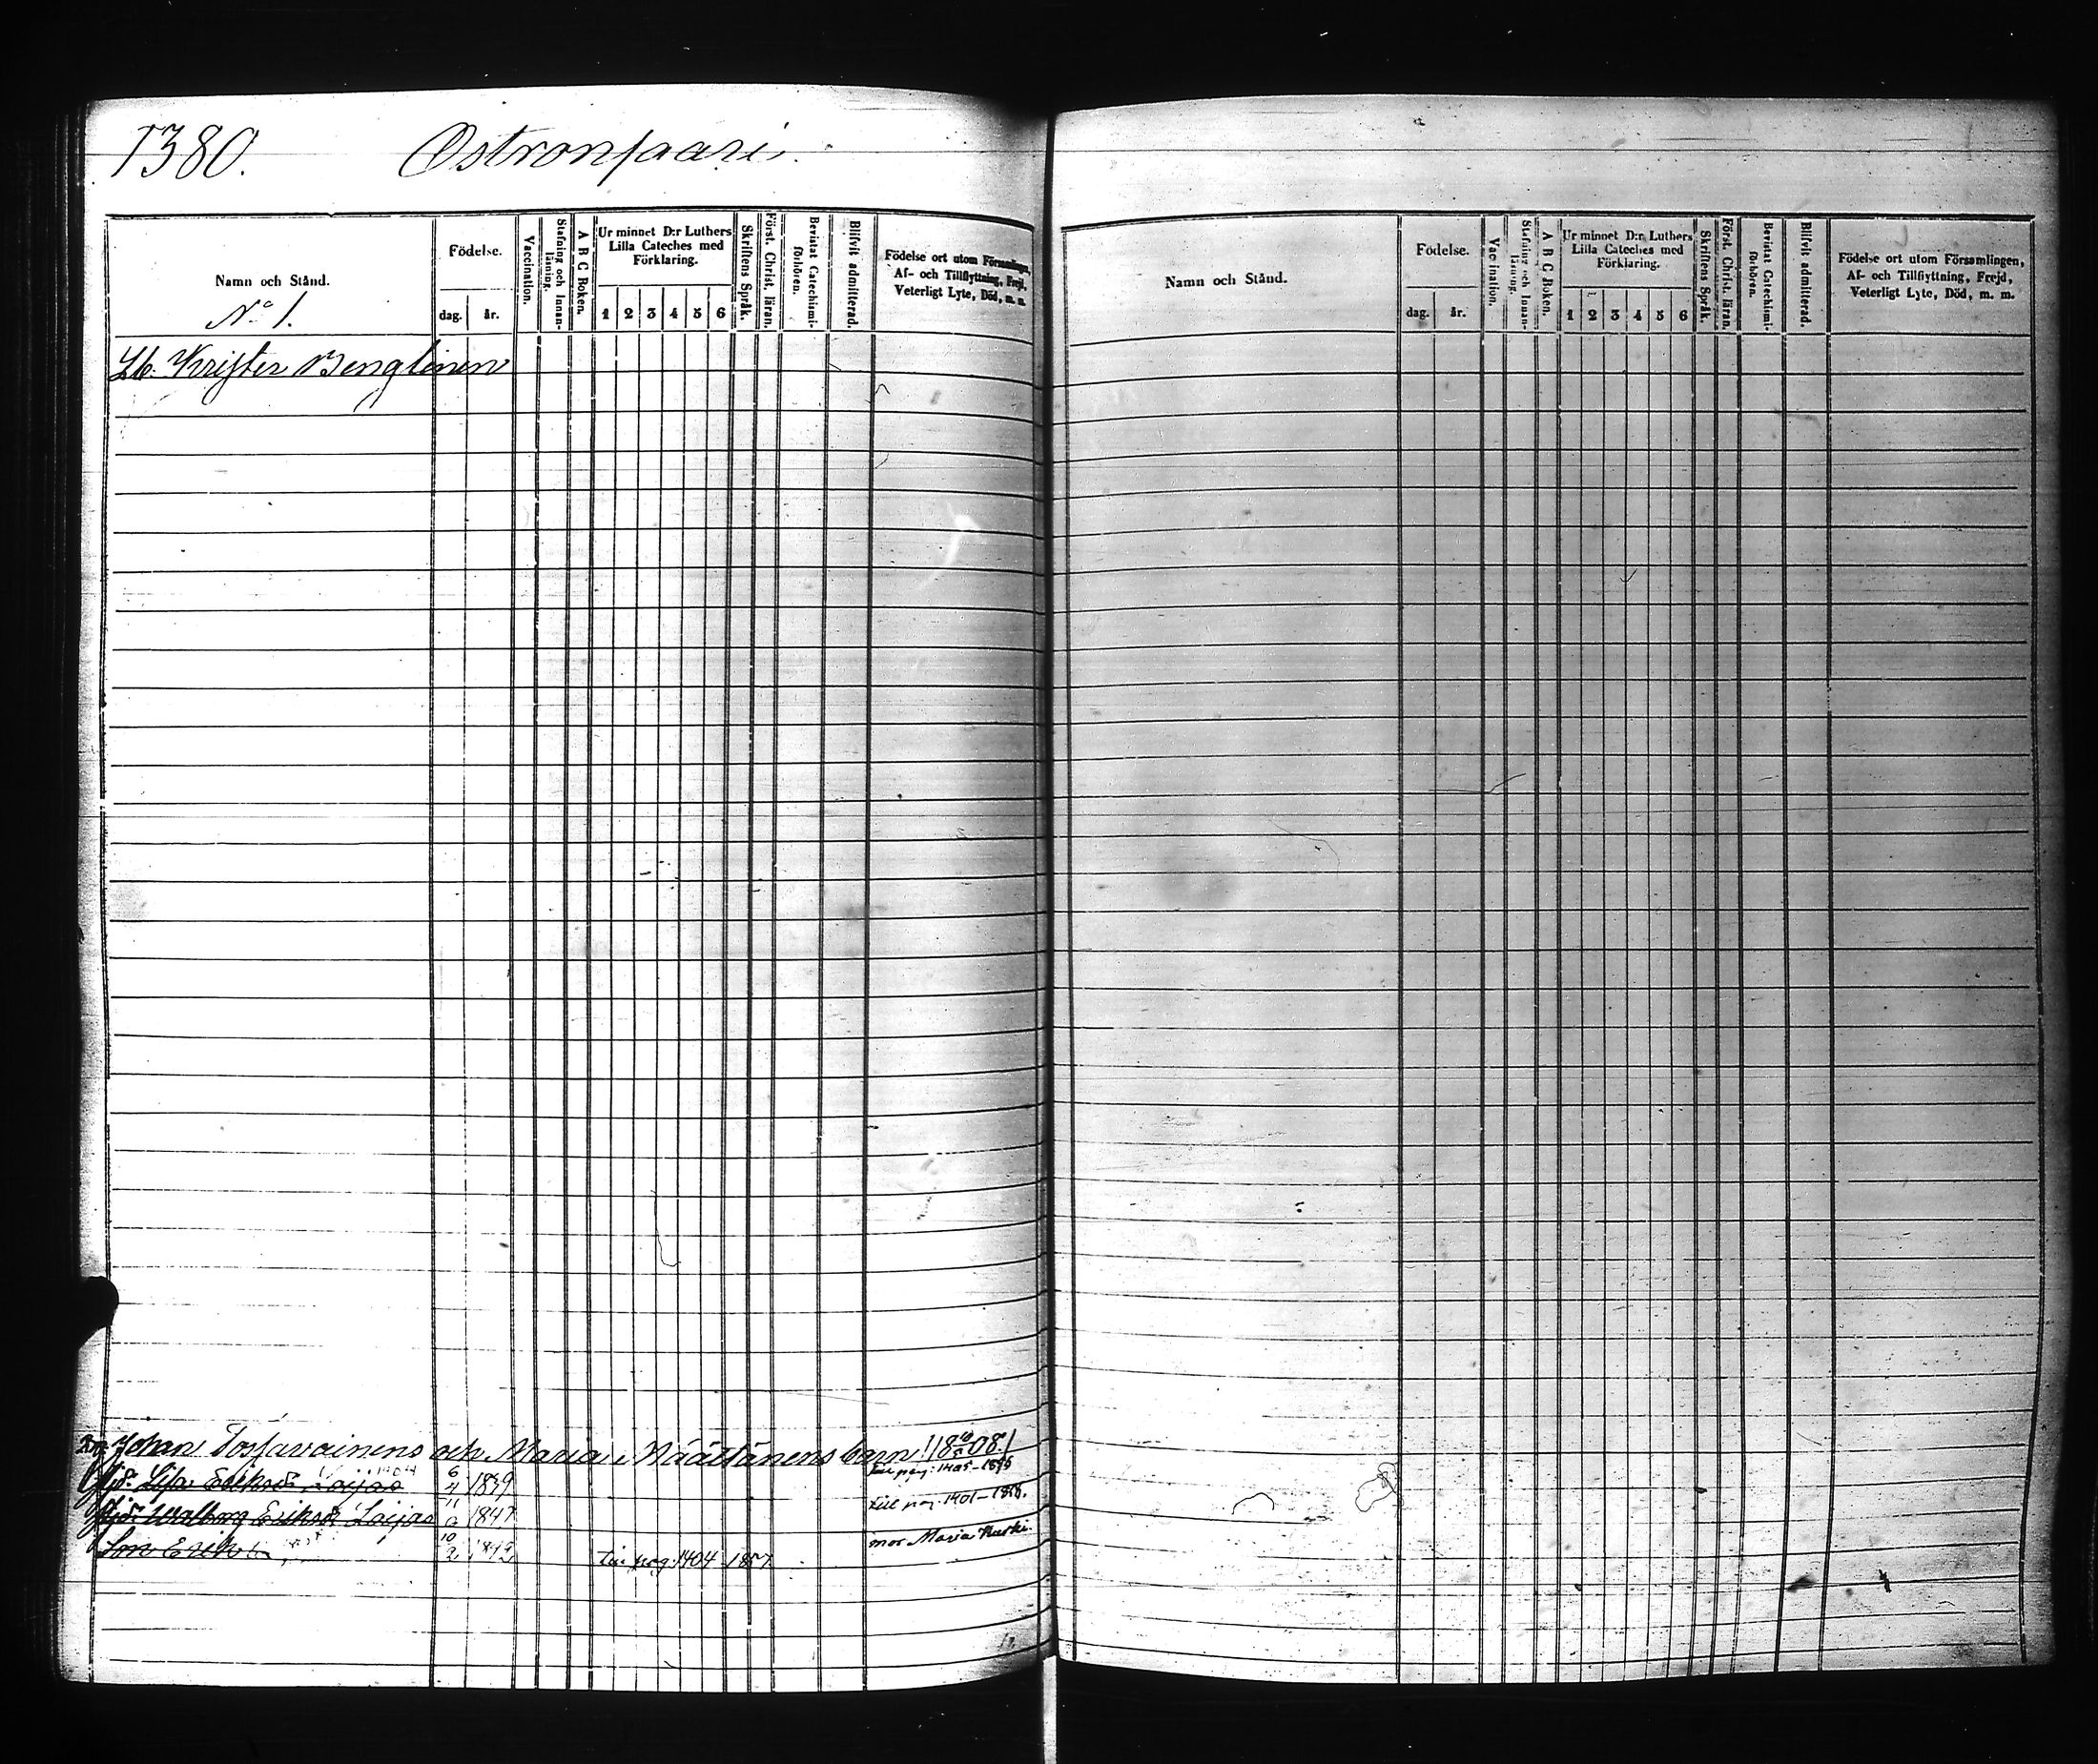 1380. Ostronsaari.
Namn och Stånd.
Födelse.
dag. år.
Vaccination.
Stafning och Innanläsning.
A B C Boken.
Ur minnet D:r Luthers Lilla Cateches med Förklaring.
1 2 3 4 5 6
Skriftens Språk.
Först. Christ. läran.
Bevistat Catechismiförhören.
Blifvit admitterad.
Födelse ort utom Församlingen,
Af- och Tillflyttning, Frejd,
Veterligt Lyte, Död, m. m.
No 1.
Lb. Krister Bengtinen
Johan Tossavainens och Maria Määttänens barn
Lisa Eriksdr Laijas 6/4 1839 till pag: 1405-1855
Walborg Eriksdr Laijas 1847 till pag. 1401-1858.
Son Erik 10/2 mor Maria
till pag: 1404 1857.
Namn och Stånd.
Födelse.
dag. år.
Vaccination.
Stafning och Innanläsning.
A B C Boken.
Ur minnet D:r Luthers Lilla Cateches med Förklaring.
1 2 3 4 5 6
Skriftens Språk.
Först. Christ. läran.
Bevistat Catechismiförhören.
Blifvit admitterad.
Födelse ort utom Församlingen,
Af- och Tillflyttning, Frejd,
Veterligt Lyte, Död, m. m.